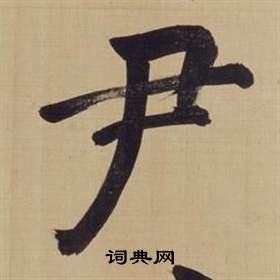 尹
词典网